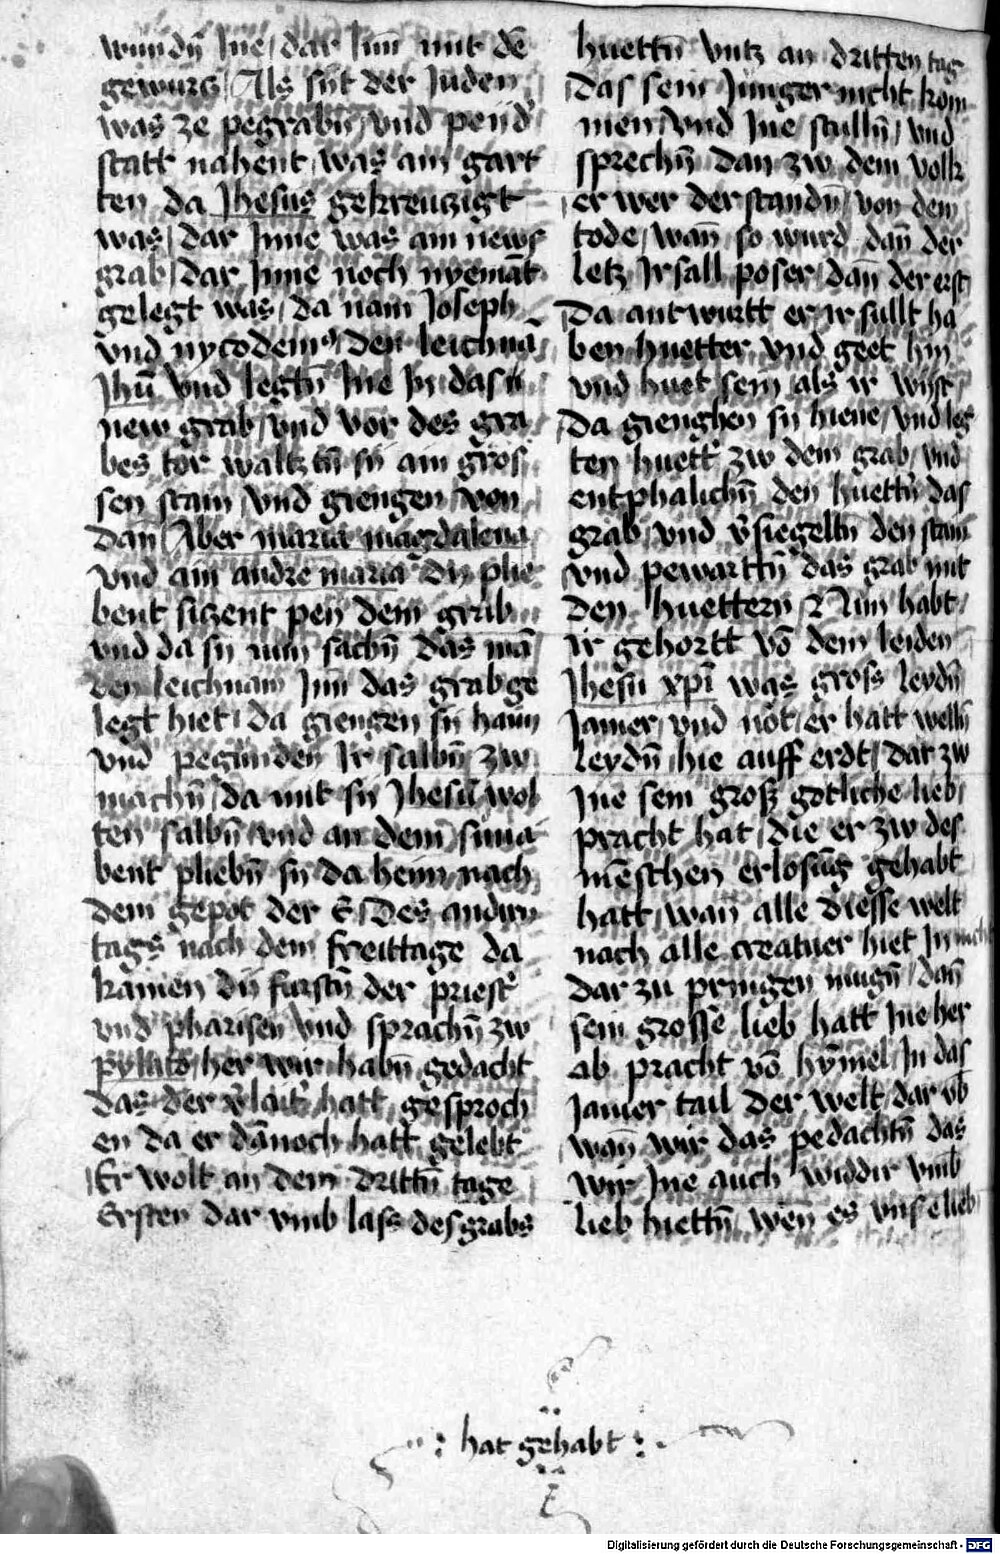 wundn̄ Ine / dar Inn mit dē
gewurcz / Als sit der Juden
was ze pegrabn̄ / vnd pei dˀ
statt nahent was ain gart
ten da Jhesus gekreuczigt
was / dar Inne was ain news
grab / dar Inne noch nyemāt
gelegt was / da nam Joseph
vnd nycodemꝰ / den leichnā
Jhū vnd legtn̄ Ine In das
new grab / vnd vor des gra
bes tor waltztn̄ sy ain gros
sen stain / vnd giengen von
dan̄ / Aber maria magdalena
vnd ain andre maria dy plie
bent siczent pey dem grab
vnd da sy nun sachn̄ das mā
den leichnam Inn das grab ge
legt hiet / da giengen sy haim
vnd pegunden Ir salbn̄ zw
machn̄ / da mit sy Jhesū wol
ten salbn̄ vnd an dem suna
bent pliebn̄ sy da heim nach
dem gepot der E / Des andern
tags nach dem freittage da
kamen dy furstn̄ der priestˀ
vnd pharisen vnd sprachn̄ zw
pylato / her wir habn̄ gedacht
das der vˀlaitˀ hatt gesproch
en da er dānoch hatt gelebt
Er wolt an dem drittn̄ tage
Ersten dar vmb lass des grabs
huettn̄ vntz an dritten tag
das sein Junger nicht kom
men / vnd Ine stulln̄ / vnd
sprechn̄ dan zw dem volk
er wer derstandn̄ / von dem
tode / wan̄ so wurd dan̄ der
letz Irsall poser / dan̄ der erst
Da antwurtt er ir sullt ha
ben huetter vnd geet hin
vnd huet sein als ir wist
Da gienghen sy hiene / vnd leg
ten huettˀ zw dem grab / vnd
entphalichn̄ den huettˀn das
grab / vnd vˀsiegeltn̄ den stain
vnd pewarttn̄ das grab mit
den huettern Nun habt
ir gehortt vō dem leiden
Jhesu xp̄i was gross leydn̄
Jamer / vnd not / er hatt welln̄
leydn̄ / hie auff erdt / dar zw
Ine sein grosz gotliche lieb /
pracht hat / die er zw des
mēschen erlosūg gehabt
hatt / wan̄ alle diesse welt
nach alle creatuer hiet In nicht
dar zu pringen mugn̄ / dan̄
sein grosse lieb hatt Ine her
ab pracht vō hȳmel / In das
Jamer tail der welt / dar vb
wan̄ wir das pedachtn̄ das
wir Ine auch widdir vmb
lieb hiettn̄ / wen̄ es vnse lieb
: hat gehabt :
Digitalisierung gefördert durch die Deutsche Forschungsgemeinschaft - DFG